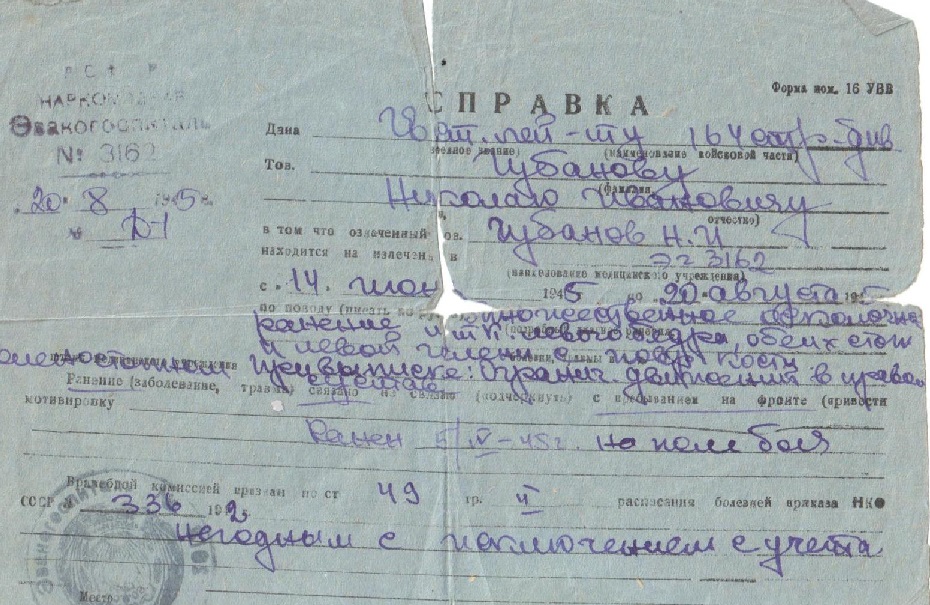 РСФСР
НАРКОМЗДРАВ
Эвакогоспиталь
№ 3162
20 8 1945 г.
№ Д-1
Форма № 16 УВВ
СПРАВКА
Дана Гв. ст. лей-ту 164 стр. див.
(военное звание) (наименование войсковой части)
Тов. Чубанову
(фамилия,
Николаю Ивановичу
отчество)
в том что означенный тов. Чубанов Н. И
находится на излечении в ЭГ 3162
(наименование медицинского учреждения)
с 14. июн 1945 по 20 августа 1945
по поводу (писать множественное осколочн
ранение м. т. левого бедра, обеих стоп
и левой голени с повр. кости
При выписке: Огранич. движений в право
голеностопном
суставе
Ранение (заболевание, травма) связано не связано (подчеркнуть) с пребыванием на фронте (привести
мотивировку
Ранен IV-45 г. на поле боя
Врачебной комиссией признан по ст 49 гр. II расписания болезней приказа НКО
СССР 336 1942
негодным с исключением с учета
Место